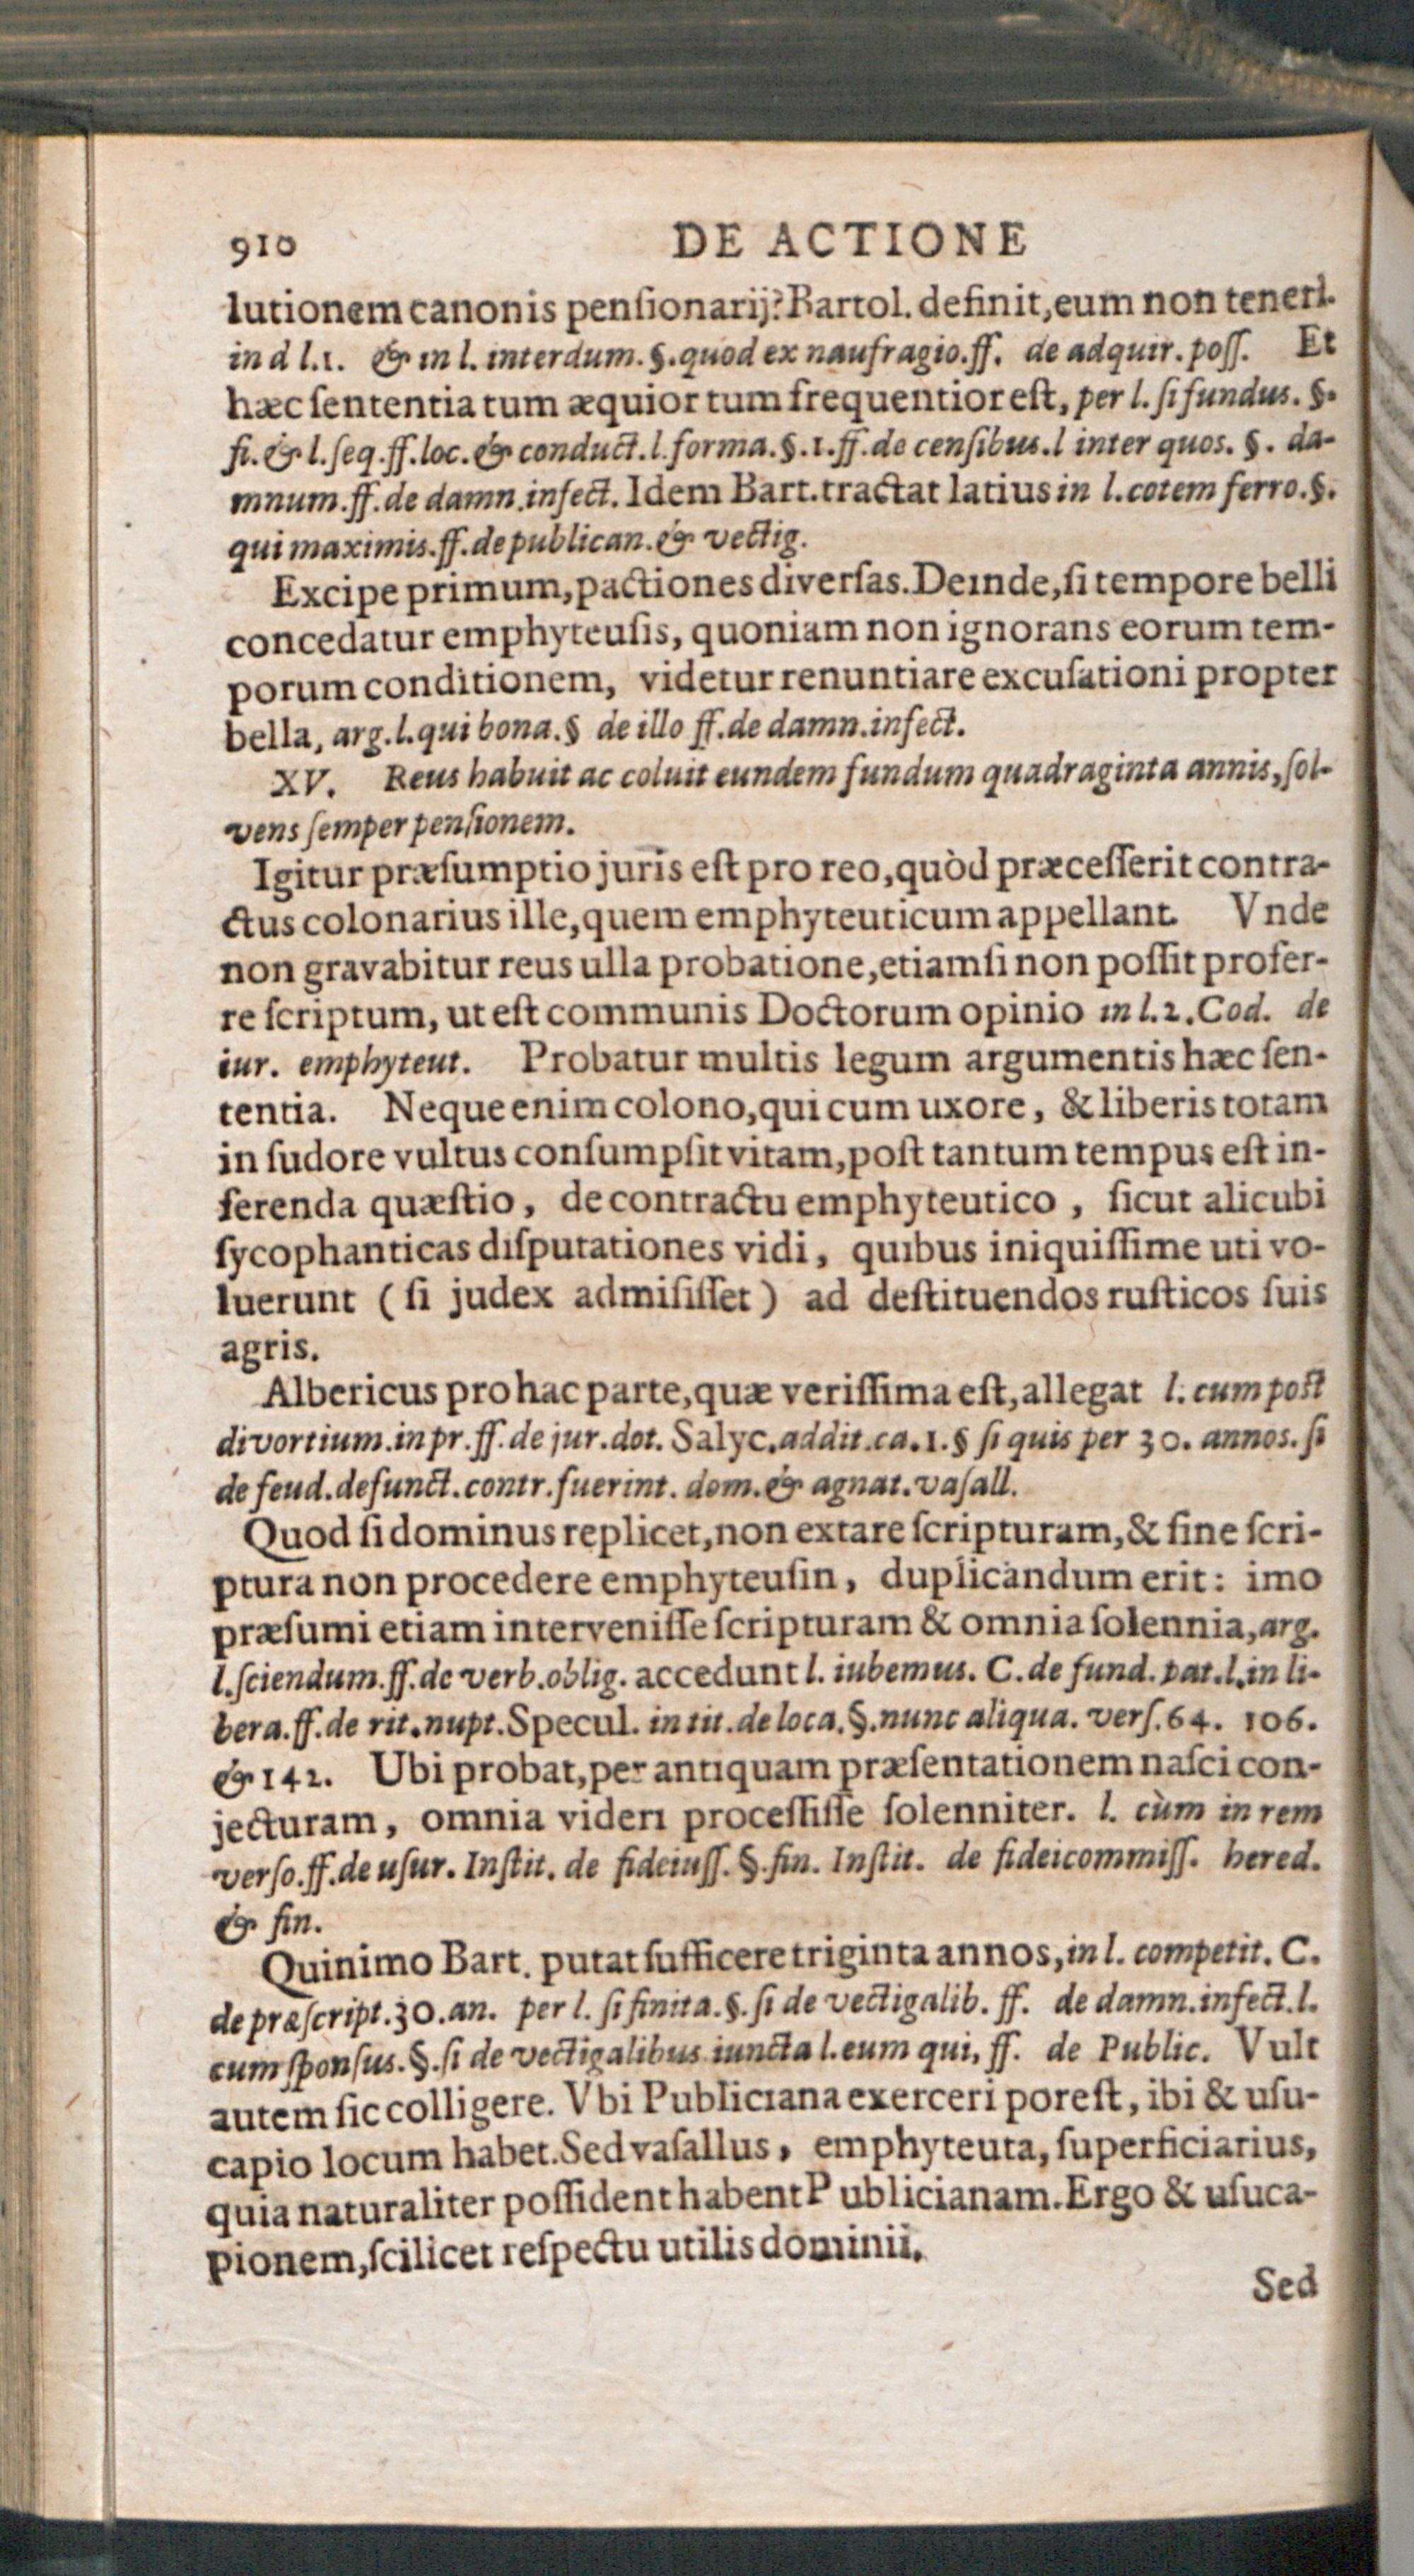 910 DE ACTIONE
lutionem canonis penſionarij? Bartol. definit, eum non teneri.
in d l.1. & in l. interdum. §. quod ex naufragio. ff. de adquir. poſſ. Et
hæc ſententia tum æquior tum frequentior eſt, per l. ſi fundus. §.
fi. & l. ſeq. ff. loc. & conduct. l. forma. §. 1. ff. de cenſibus. l inter quos. §. da-
mnum. ff. de damn. infect. Idem Bart. tractat latius in l. cotem ferro. §.
qui maximis. ff. de publican. & vectig.
Excipe primum, pactiones diverſas. Deinde, ſi tempore belli
concedatur emphyteuſis, quoniam non ignorans eorum tem-
porum conditionem, videtur renuntiare excuſationi propter
bella, arg. l. qui bona. § de illo ff. de damn. infect.
XV. Reus habuit ac coluit eundem fundum quadraginta annis, ſol-
vens ſemper penſionem.
Igitur præſumptio juris eſt pro reo, quòd præceſſerit contra-
ctus colonarius ille, quem emphyteuticum appellant. Vnde
non gravabitur reus ulla probatione, etiamſi non poſſit profer-
re ſcriptum, ut eſt communis Doctorum opinio in l. 2. Cod. de
iur. emphyteut. Probatur multis legum argumentis hæc ſen-
tentia. Neque enim colono, qui cum uxore, & liberis totam
in ſudore vultus conſumpſit vitam, poſt tantum tempus eſt in-
ferenda quæſtio, de contractu emphyteutico, ſicut alicubi
ſycophanticas diſputationes vidi, quibus iniquiſſime uti vo-
luerunt (ſi judex admiſiſſet) ad deſtituendos ruſticos ſuis
agris.
Albericus pro hac parte, quæ veriſſima eſt, allegat l. cum poſt
divortium. in pr. ff. de jur. dot. Salyc. addit. ca. 1. § ſi quis per 30. annos. ſi
de feud. defunct. contr. fuerint. dom. & agnat. vaſall.
Quod ſi dominus replicet, non extare ſcripturam, & ſine ſcri-
ptura non procedere emphyteuſin, duplicandum erit: imo
præſumi etiam interveniſſe ſcripturam & omnia ſolennia, arg.
l. ſciendum. ff. de verb. oblig. accedunt l. iubemus. C. de fund. pat. l. in li-
bera. ff. de rit. nupt. Specul. in tit. de loca. §. nunc aliqua. verſ. 64. 106.
& 142. Ubi probat, per antiquam præſentationem naſci con-
jecturam, omnia videri proceſſiſſe ſolenniter. l. cùm in rem
verſo. ff. de uſur. Inſtit. de fideiuſſ. §. fin. Inſtit. de fideicommiſſ. hered.
& fin.
Quinimo Bart. putat ſufficere triginta annos, in l. competit. C.
de præſcript. 30. an. per l. ſi finita. §. ſi de vectigalib. ff. de damn. infect. l.
cum ſponſus. §. ſi de vectigalibus iuncta l. eum qui, ff. de Public. Vult
autem ſic colligere. Vbi Publiciana exerceri poreſt, ibi & uſu-
capio locum habet. Sed vaſallus, emphyteuta, ſuperficiarius,
quia naturaliter poſſident habent Publicianam. Ergo & uſuca-
pionem, ſcilicet reſpectu utilis dominii.
Sed